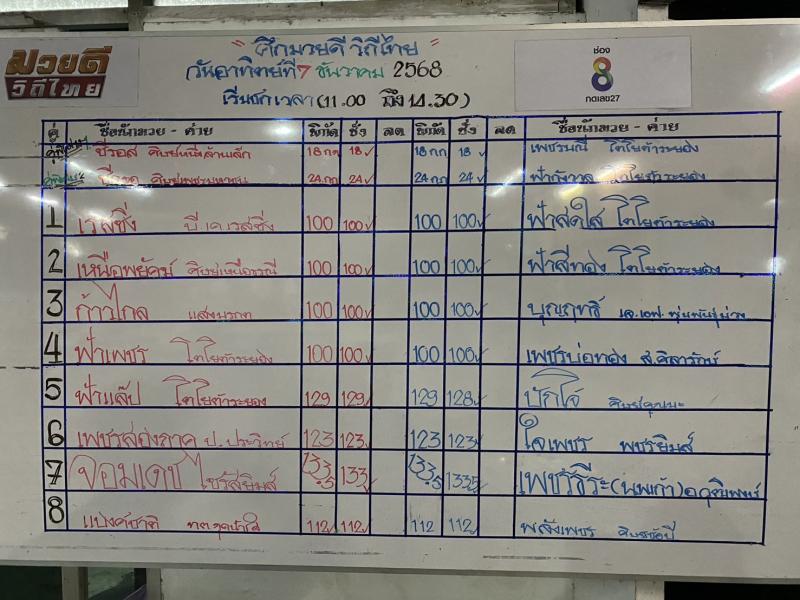 มวยดี
วิถีไทย
" ศึกมวยดี วิถีไทย "
วันอาทิตย์ที่ 7 ธันวาคม 2568
เริ่มชกเวลา (11.00 ถึง 14.30)
ช่อง
8
กดเลข27
คู่ ชื่อนักมวย - ค่าย พิกัด ชั่ง ลด พิกัด ชั่ง ลด ชื่อนักมวย - ค่าย
18 กก 18 18 กก 18 โตโยต้าระยอง
24 กก 24 24 กก 24 โตโยต้าระยอง
1 เรสซิ่ง บี.เค.เรสซิ่ง 100 100 100 100 ฟ้าสดใส โตโยต้าระยอง
2 เหนือพยัคฆ์ 100 100 100 100 ฟ้าสีทอง โตโยต้าระยอง
3 ก้าวไกล แสงมรกต 100 100 100 100 บุญฤทธิ์
4 ฟ้าเพชร โตโยต้าระยอง 100 100 100 100 เพชรบ่อทอง ส.ศิลารักษ์
5 ฟ้าแล๊ป โตโยต้าระยอง 129 129 129 128 บักโจ้
6 เพชรสองภาค ป.ประวิทย์ 123 123 123 123 ใจเพชร พชรยิมส์
7 จอมเดช ไชรัสยิมส์ 133.5 133 133.5 133.5 เพชรธีระ (นพเก้า)
8 แบ่งค์ชาติ 112 112 112 112 พลังเพชร